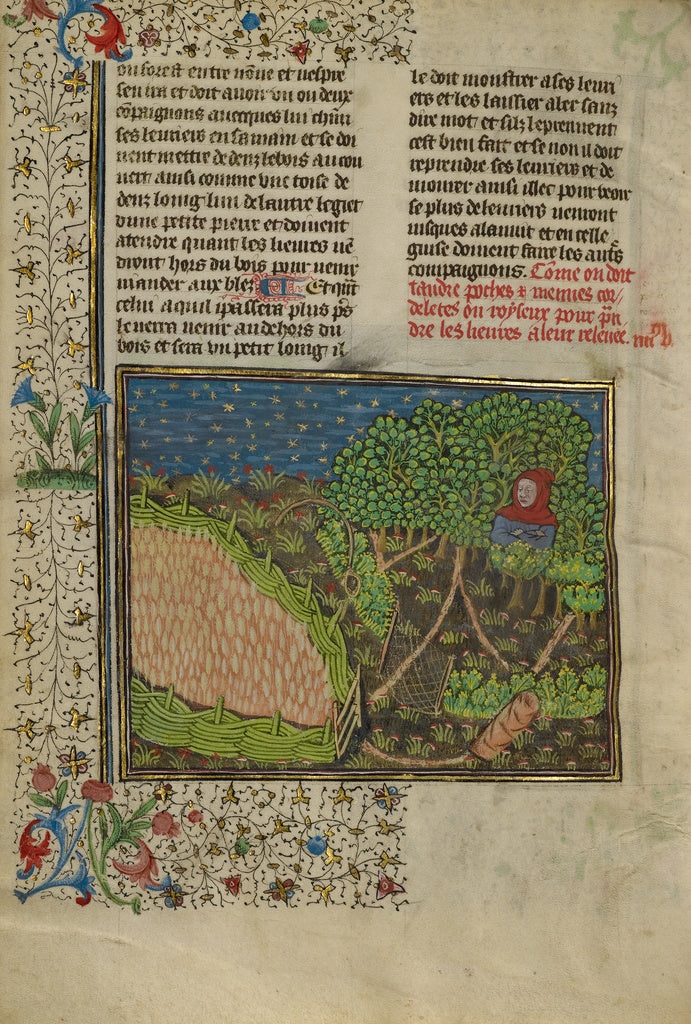 ou forest entre none et vespre
sen ira et doit avoir un ou deux
compaignons avecques lui chun
ses levriers en sa main et se doi
vent mettre dedenz le bois au cou
vert ainsi comme une toise de
denz loing lun de lautre le giet
dune petite pierre et doivent
atendre quant les lievres ven
dront hors du bois pour venir
viander aux blez Et quit
celui a qui ipassera plus ps
le verra venir au dehors du
bois et sera un petit loing il
le doit moustrer a ses levri
ers et les laissier aler sanz
dire mot et silz le prennent
cest bien fait et se non il doit
reprendre ses levriers et de
mourer ainsi illec pour veoir
se plus de levriers vemont
iusques a la nuit et en celle
guise doivent faire les auts
compaignons. Come on doit
tandre poches et menues cor
deletes ou royseux pour pn
dre les lievres a leur relevee.